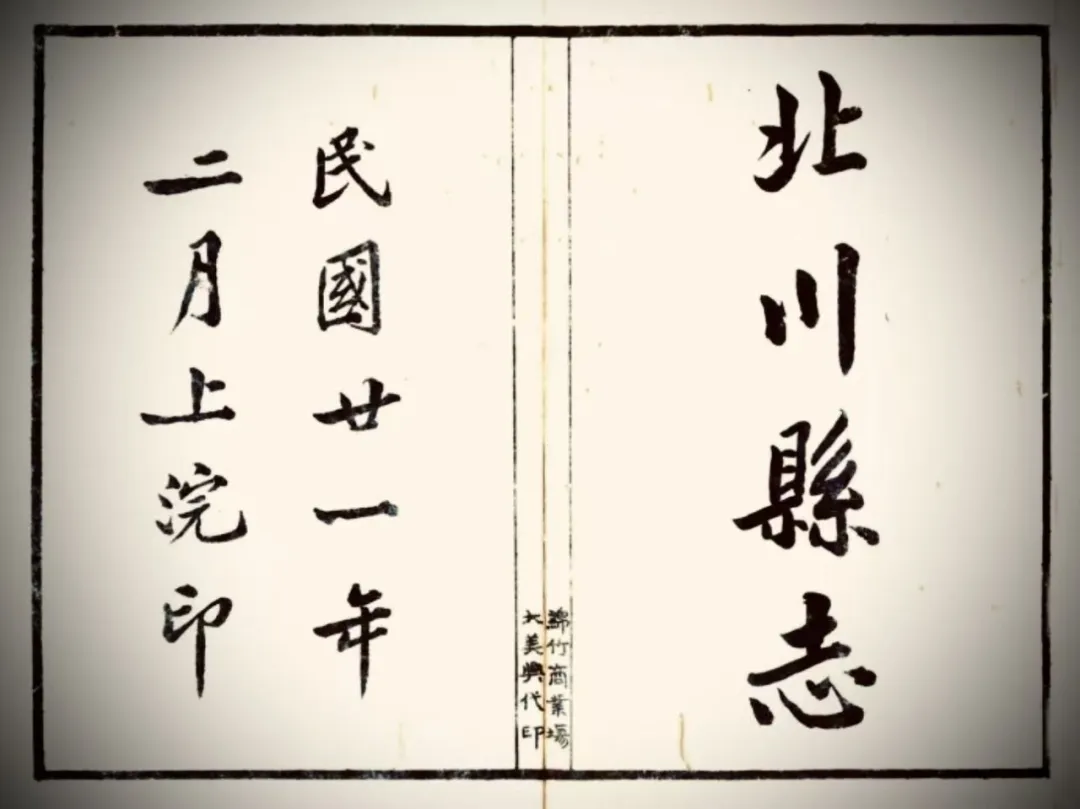 北川縣志
綿竹商業場
大美興代印
民國廿一年
二月上浣印